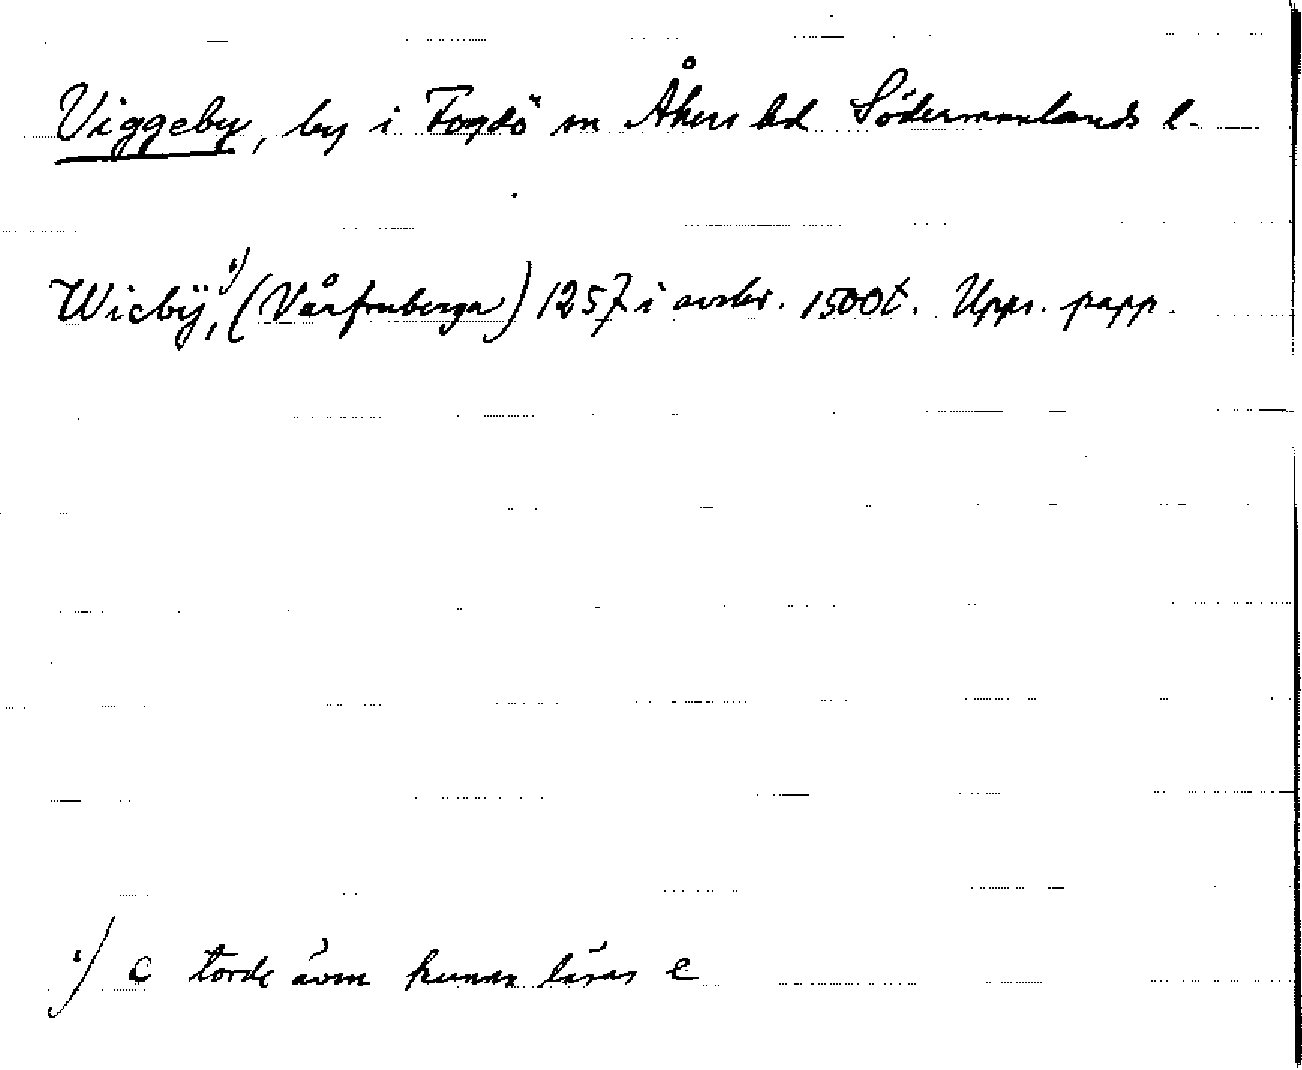 Viggeby, by i Fogdö sn Åkers hd Södermanlands l.
Wicbÿ,¹⁾ (Vårfruberga) 1257 i avskr. 1500t. Upps. papp.
¹⁾ c torde även kunna läsas e